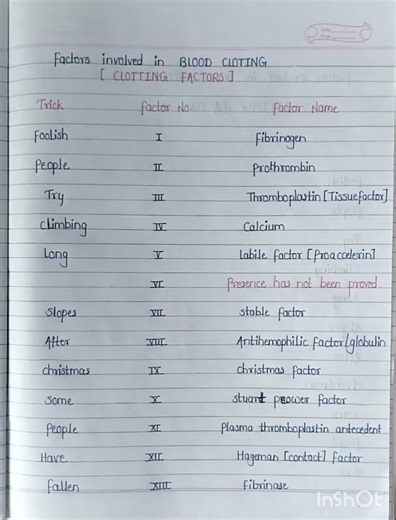 Factors involved in BLOOD CLOTING
[ CLOTTING FACTORS ]
Trick Factor No. Factor Name
Foolish I Fibringen
People II Prothrombin
Try III Thromboplastin [Tissue factor]
Climbing IV Calcium
Long V Labile factor [Proaccelerin]
VI Presence has not been proved
Slopes VII stable factor
After VIII Antihemophilic factor/globulin
christmas IX christmas factor
Some X stuart power factor
People XI Plasma thromboplastin antecedent
Have XII Hageman [contact] factor
Fallen XIII Fibrinase
InShOt